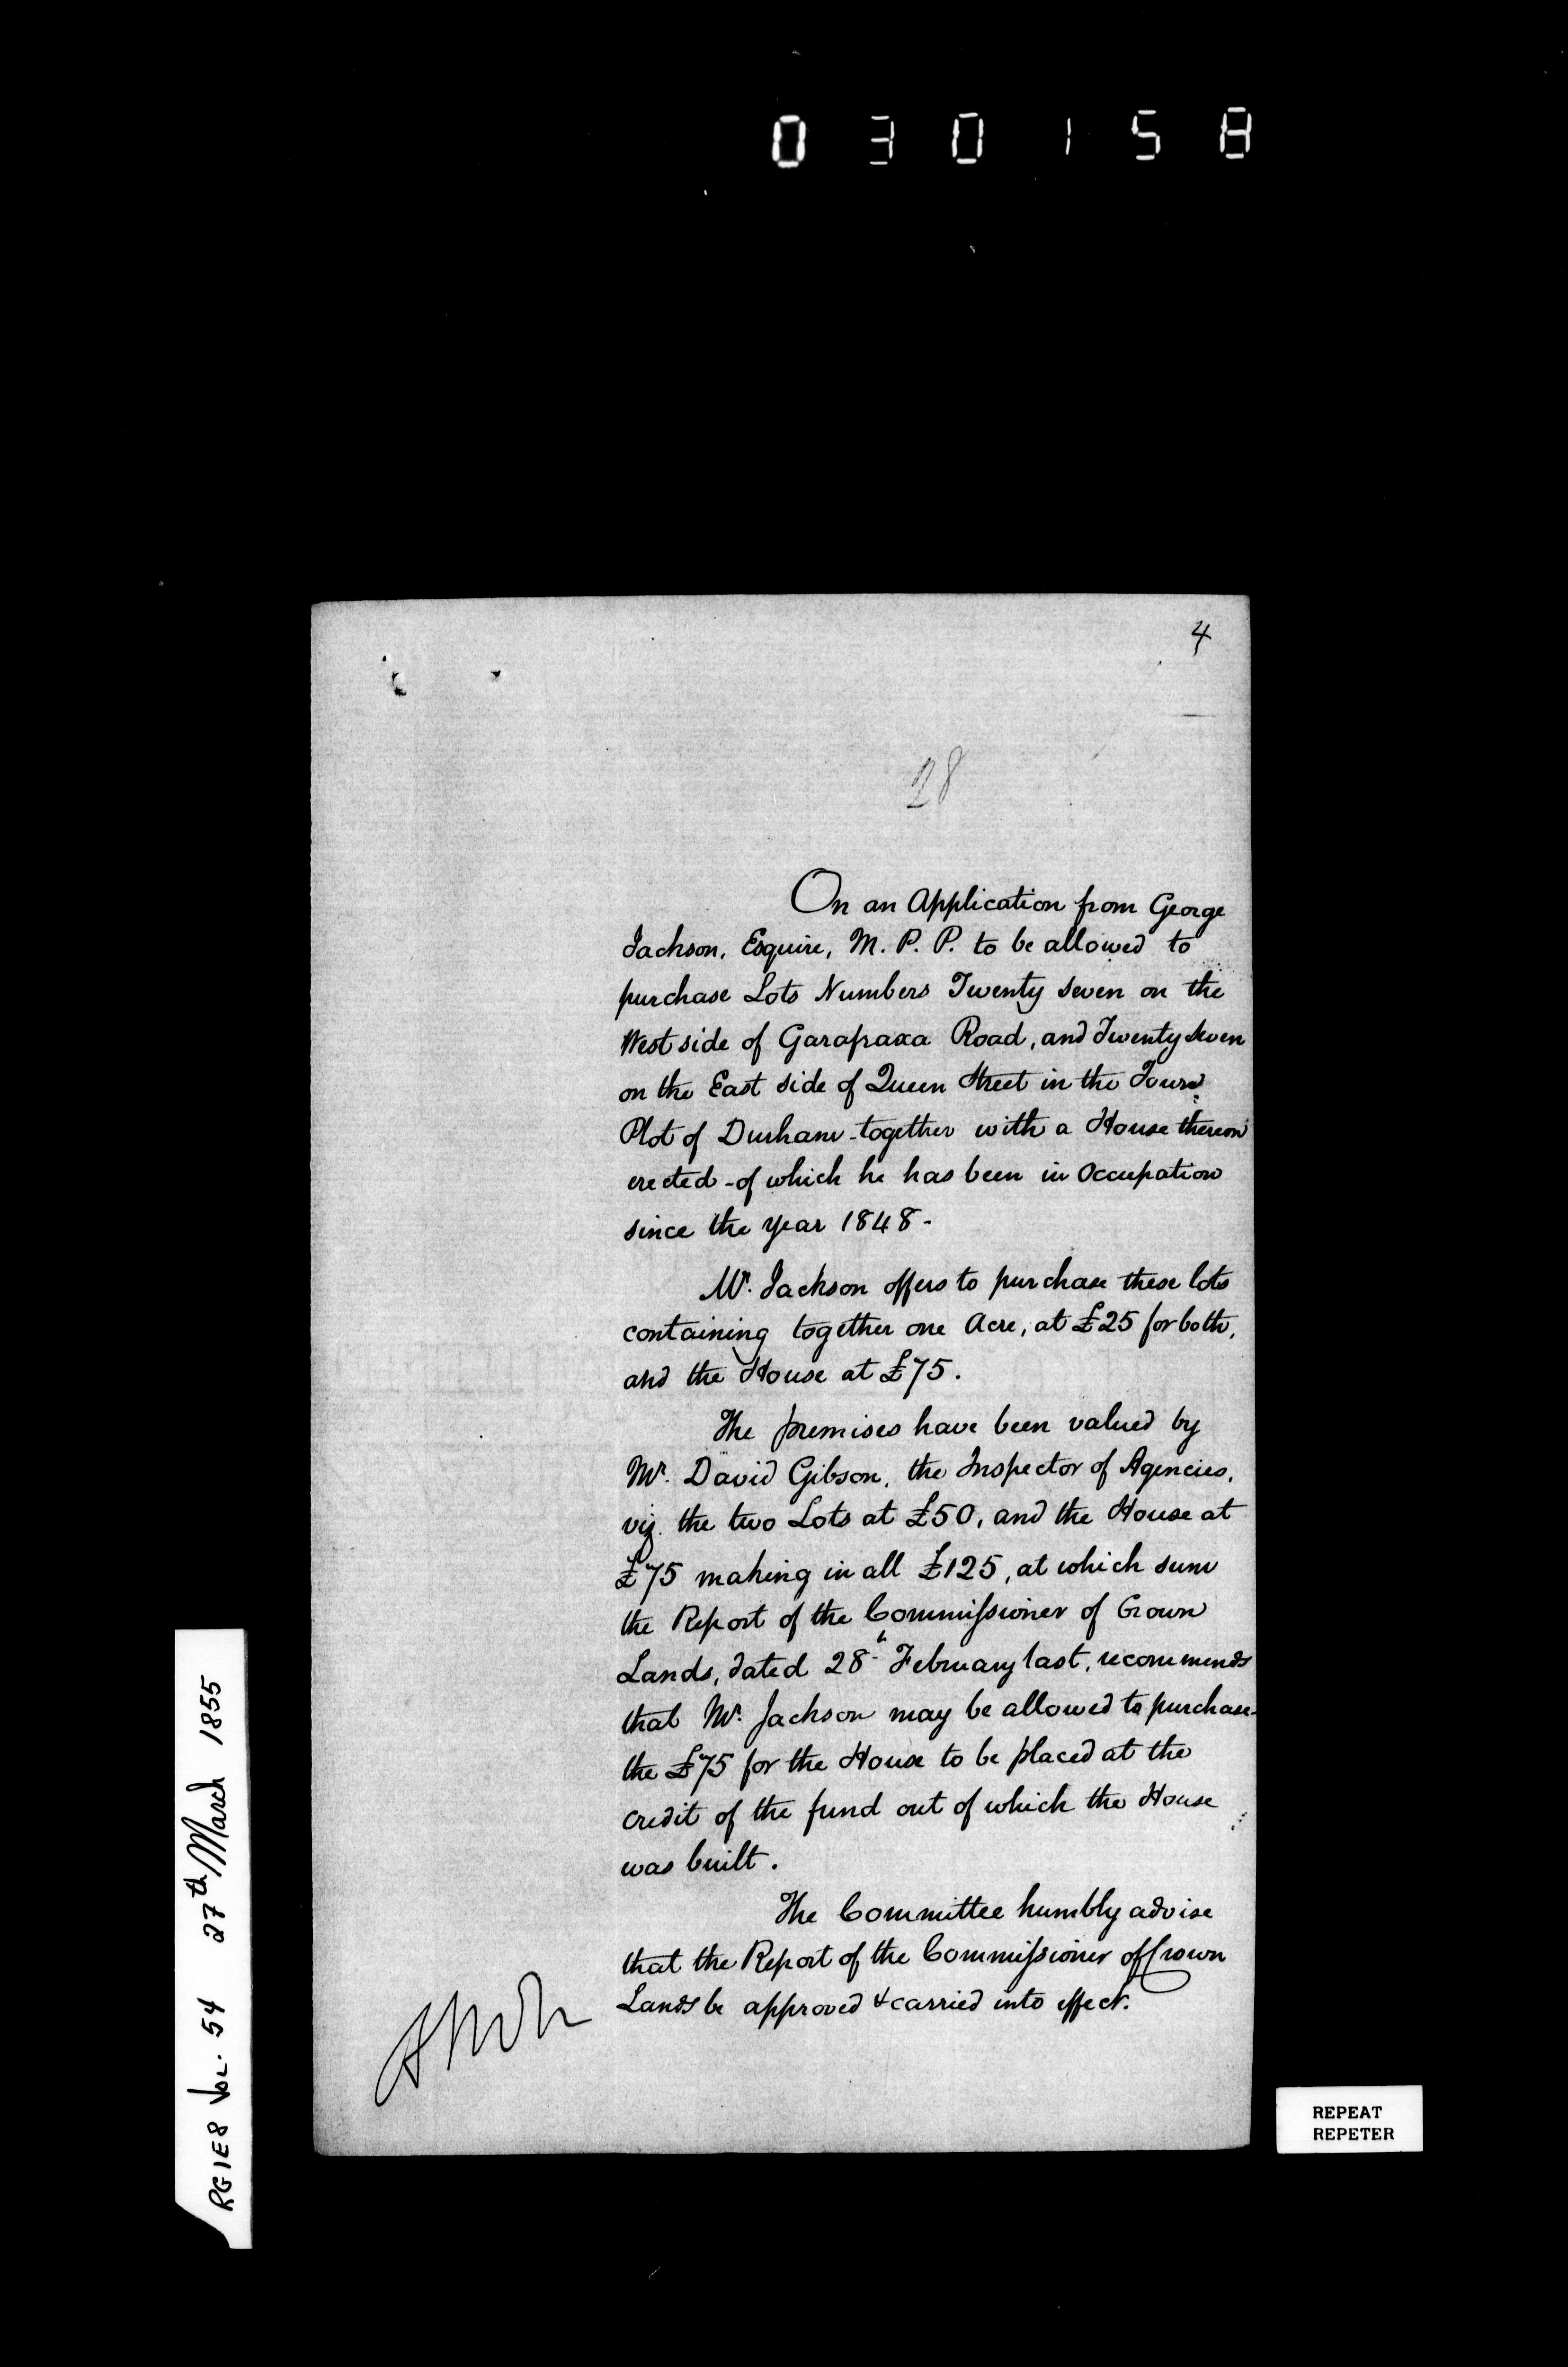 030158
4
28
On an Application from George
Jackson, Esquire, M. P. P. to be allowed to
purchase Lots Numbers Twenty seven on the
West side of Garafraxa Road, and Twenty seven
on the East side of Queen Street in the Town
Plot of Durham - together with a House thereon
erected - of which he has been in Occupation
since the year 1848 -
Mr. Jackson offers to purchase these lots
containing together one Acre, at £25 for both,
and the House at £75.
The premises have been valued by
Mr. David Gibson, the Inspector of Agencies,
viz. the two Lots at £50, and the House at
£75 making in all £125, at which sum
the Report of the Commissioner of Crown
Lands, dated 28th February last, recommends
that Mr. Jackson may be allowed to purchase -
the £75 for the House to be placed at the
credit of the fund out of which the House
was built.
The Committee humbly advise
that the Report of the Commissioner of Crown
Lands be approved & carried into effect.
RG1E8 Vol. 54 27th March 1855
REPEAT
REPETER